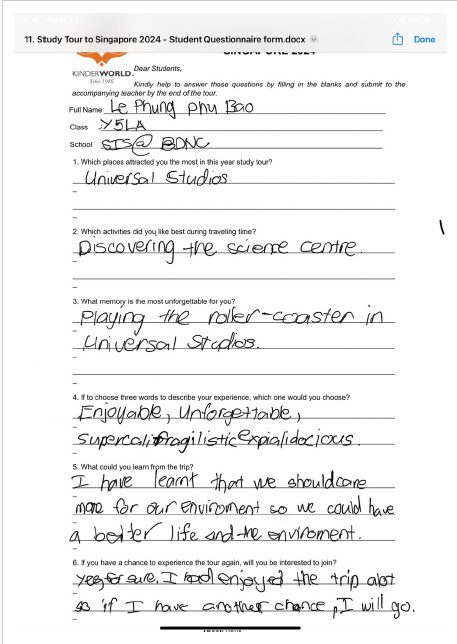 11. Study Tour to Singapore 2024 - Student Questionnaire form.docx
Done
SINGAPORE 2024
KINDERWORLD
Since 1986
Dear Students,
Kindly help to answer these questions by filling in the blanks and submit to the
accompanying teacher by the end of the tour.
Full Name Le Phung Phu Bao
Class Y5LA
School SIS@ BDNC
1. Which places attracted you the most in this year study tour?
Universal Studios
2. Which activities did you like best during traveling time?
Discovering the science centre.
3. What memory is the most unforgettable for you?
Playing the roller-coaster in
Universal Studios.
4. If to choose three words to describe your experience, which one would you choose?
Enjoyable, Unforgettable,
Supercalifragilisticexpialidocious.
5. What could you learn from the trip?
I have learnt that we should care
more for our enviroment so we could have
a better life and the enviroment.
6. If you have a chance to experience the tour again, will you be interested to join?
Yes for sure, I had enjoyed the trip alot
so if I have another chance, I will go.